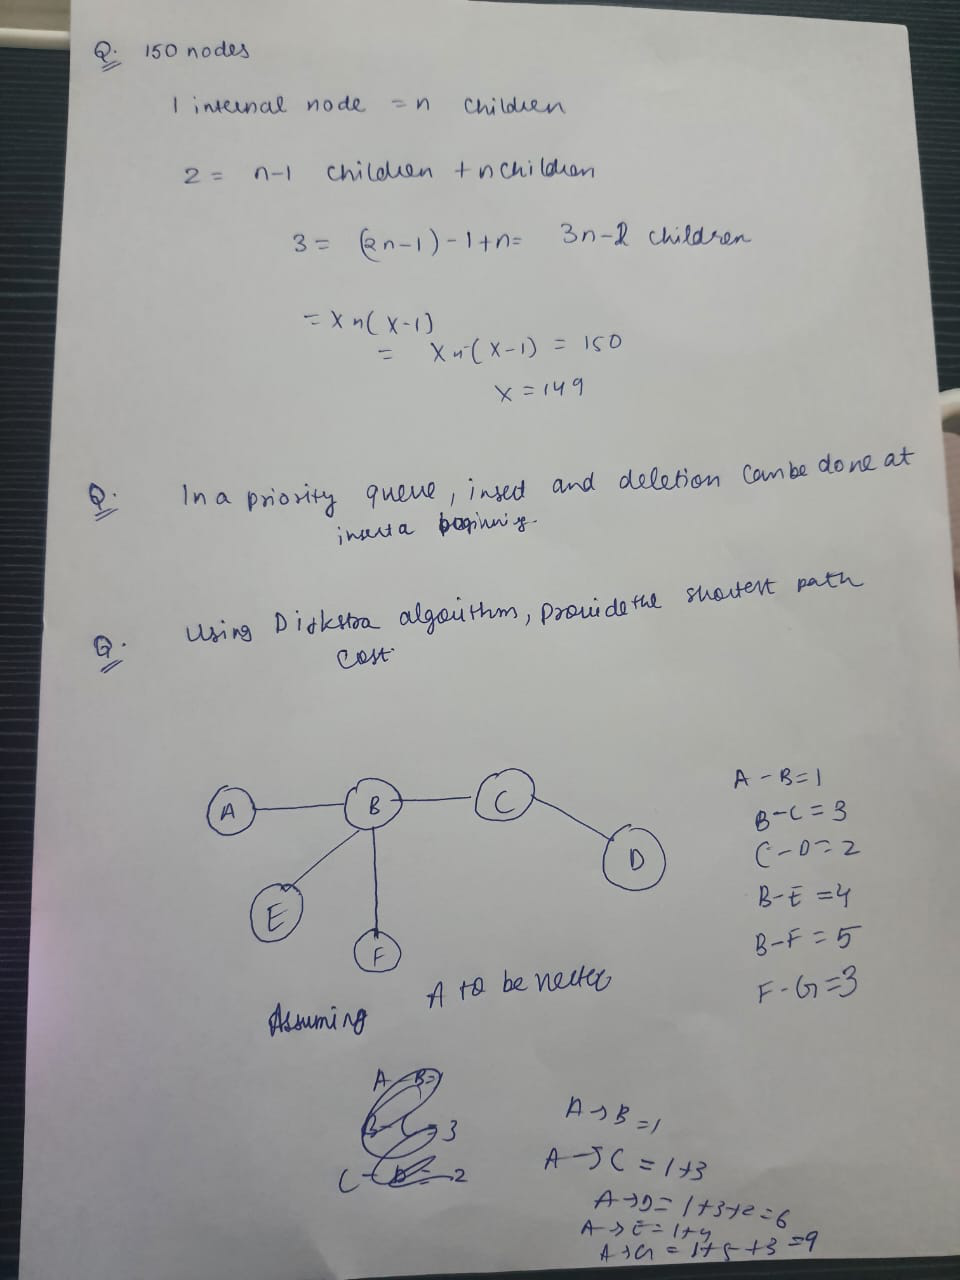 Q. 150 nodes
1 internal node = n children
2 = n-1 children + n children
3 = (2n-1)-1+n= 3n-2 children
= Xn(X-1)
= Xn-(X-1) = 150
X = 149
Q. In a priority queue, insert and deletion can be done at
insert a beginning.
Q. Using Dijkstra algorithm, provide the shortest path
cost
A
B
C
D
E
F
A-B=1
B-C=3
C-D=2
B-E=4
B-F=5
F-G=3
Assuming A to be
A B=
B- =3
C-D=2
A→B=1
A→C=1+3
A→D=1+3+2=6
A→E=1+4
A→G=1+5+3=9